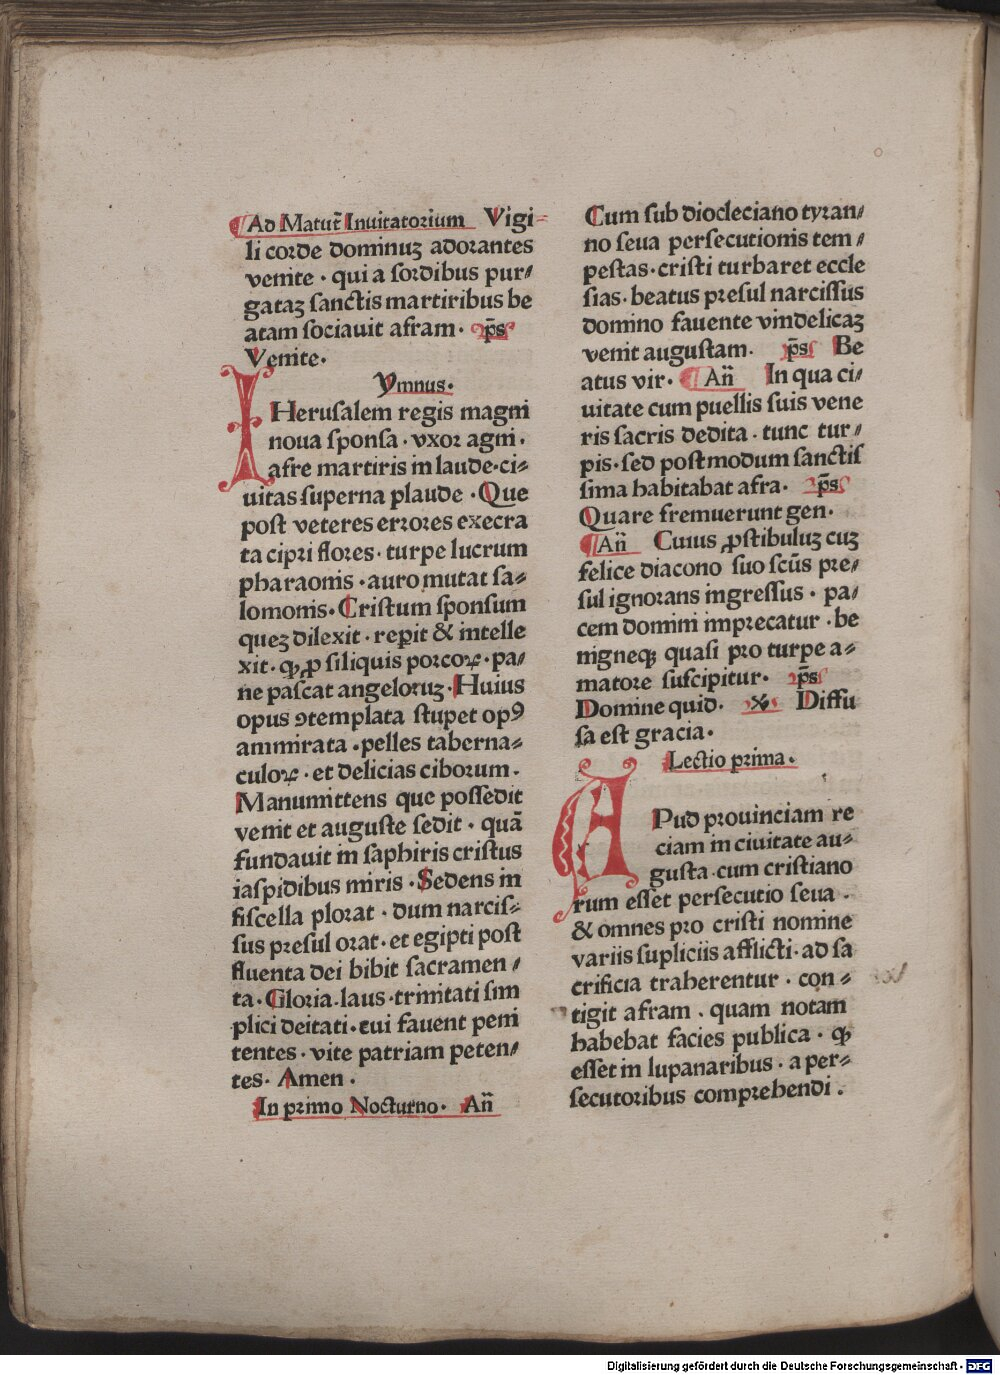 Ad Matut᷑ Inuitatorium Vigi⸗
li corde dominuꝫ adorantes
venite · qui a sordibus pur⸗
gataꝫ sanctis martiribus be
atam sociauit afram · p̄s
Venite ·
Ymnus ·
IHerusalem regis magni
noua sponsa · vxor agni ·
afre martiris in laude · ci⸗
uitas superna plaude · Que
post veteres errores execra
ta cipri flores · turpe lucrum
pharaonis · auro mutat sa⸗
lomonis · Cristum sponsum
queꝫ dilexit · reperit & intelle
xit · ꝙ ꝓ siliquis porcoꝝ · pa⸗
ne pascat angeloruꝫ · Huius
opus ꝯtemplata stupet opꝰ
ammirata · pelles taberna⸗
culoꝝ · et delicias ciborum ·
Manumittens que possedit
venit et auguste sedit · quā
fundauit in saphiris cristus
iaspidibus miris · Sedens in
fiscella plorat · dum narcis⸗
sus presul orat · et egipti post
fluenta dei bibit sacramen⸗
ta · Gloria laus trinitati sim
plici deitati · cui fauent peni
tentes · vite patriam peten⸗
tes · Amen ·
In primo Nocturno · An̄
Cum sub diocleciano tyran⸗
no seua persecutionis tem⸗
pestas · cristi turbaret eccle
sias · beatus presul narcissus
domino fauente vindelicaꝫ
venit augustam · p̄s Be
atus vir · An̄ In qua ci⸗
uitate cum puellis suis vene
ris sacris dedita · tunc tur⸗
pis · sed postmodum sanctis
sima habitabat afra · p̄s
Quare fremuerunt gen ·
An̄ Cuius ꝓstibuluꝫ cuꝫ
felice diacono suo scūs pre⸗
sul ignorans ingressus · pa⸗
cem domini imprecatur · be
nigneqꝫ quasi pro turpe a⸗
matore suscipitur · p̄s
Domine quid · ℣ Diffu
sa est gracia ·
Lectio prima ·
APud prouinciam re
ciam in ciuitate au⸗
gusta · cum cristiano
rum esset persecutio seua ·
& omnes pro cristi nomine
variis supliciis afflicti · ad sa
crificia traherentur · con⸗
tigit afram · quam notam
habebat facies publica · ꝙ
esset in lupanaribus · a per⸗
secutoribus comprehendi ·
Digitalisierung gefördert durch die Deutsche Forschungsgemeinschaft - DFG